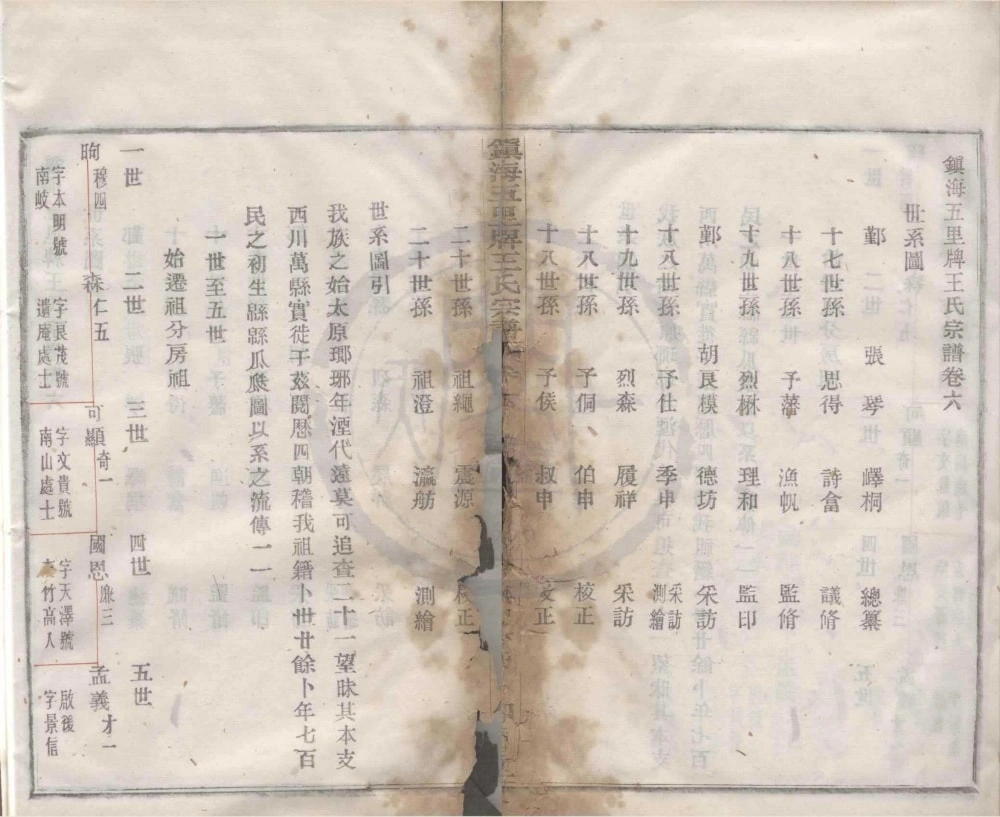 鎮海五里牌王氏宗譜卷六
世系圖
鄞 張琴 嶧桐 總纂
十七世孫 思得 詩畣 議脩
十八世孫 予藩 漁帆 監脩
十九世孫 烈楙 理和 監印
鄞 胡良模 德坊 采訪
十八世孫 予仕 季申 采訪 測繪
十九世孫 烈森 履祥 采訪
十八世孫 予侗 伯申 核正
十八世孫 予侯 叔申 校正
鎮海五里牌王氏宗譜
二十世孫 祖繩 震源 校正
二十世孫 祖澄 瀛舫 測繪
世系圖引
我族之始太原瑯琊年湮代遠莫可追查二十一望昧其本支
西川萬縣實徙于茲閱歷四朝稽我祖籍卜世廿餘卜年七百
民之初生緜緜瓜瓞圖以系之流傳一一
一世至五世
始遷祖分房祖
一世 二世 三世 四世 五世
昫 穆四 字本明號南岐
森 仁五 字良茂號遺庵處士
可顯 奇一 字文貴號南山處士
國恩 廉三 字天澤號竹高人
孟義 才一 啟後 字景信